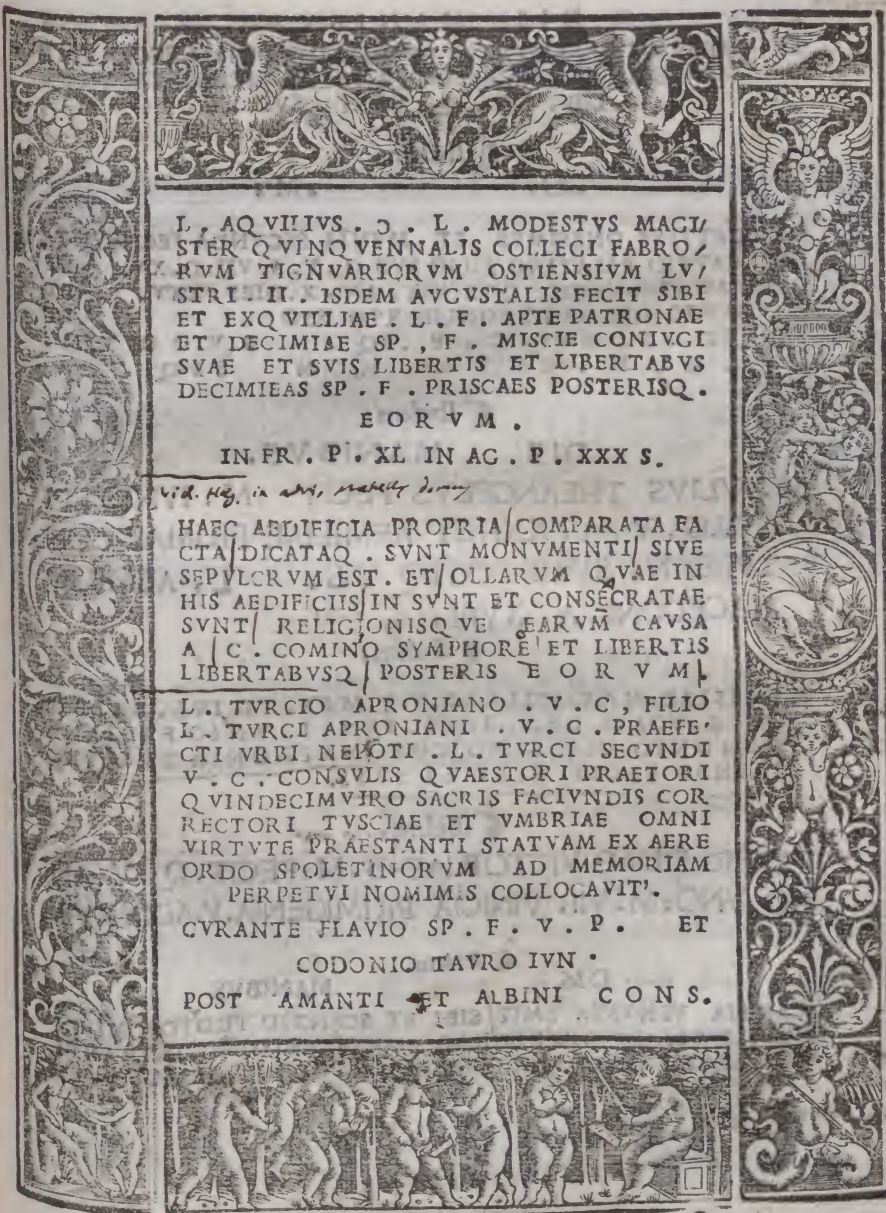 L . AQVILIVS . Ɔ . L . MODESTVS MAGI/
STER QVINQVENNALIS COLLEGI FABRO/
RVM TIGNVARIORVM OSTIENSIVM LV/
STRI . II . ISDEM AVGVSTALIS FECIT SIBI
ET EXQVILLIAE . L . F . APTE PATRONAE
ET DECIMIAE SP . F . MISCIE CONIVGI
SVAE ET SVIS LIBERTIS ET LIBERTABVS
DECIMIEAS SP . F . PRISCAES POSTERISQ .
EORVM .
IN FR . P . XL IN AG . P . XXX S .
vid. in
HAEC AEDIFICIA PROPRIA/COMPARATA FA
CTA/DICATAQ . SVNT MONVMENTI/ SIVE
SEPVLCRVM EST . ET/OLLARVM QVAE IN
HIS AEDIFICIIS/IN SVNT ET CONSECRATAE
SVNT/ RELIGIONISQVE EARVM CAVSA
A/C . COMINO SYMPHORE ET LIBERTIS
LIBERTABVSQ/POSTERIS EORVM/.
L . TVRCIO APRONIANO . V . C , FILIO
L . TVRCI APRONIANI . V . C . PRAEFE
CTI VRBI NEPOTI . L . TVRCI SECVNDI
V . C . CONSVLIS QVAESTORI PRAETORI
QVINDECIMVIRO SACRIS FACIVNDIS COR
RECTORI TVSCIAE ET VMBRIAE OMNI
VIRTVTE PRAESTANTI STATVAM EX AERE
ORDO SPOLETINORVM AD MEMORIAM
PERPETVI NOMIMIS COLLOCAVIT'.
CVRANTE FLAVIO SP . F . V . P . ET
CODONIO TAVRO IVN .
POST AMANTI ET ALBINI CONS.